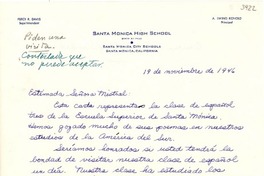 PERCY R. DAVIS
Superintendent
SANTA MONICA HIGH SCHOOL
SANTA MONICA CITY SCHOOLS
SANTA MONICA, CALIFORNIA
Principal
3922
Piden una
visita.
Contestada que
no puede aceptar.
19 de noviembre de 1946
Estimada Señora Mistral:
Esta carta representa la clase de español
Tres de la Escuela Superior de Santa Mónica.
Hemos gozado mucho de sus poemas en nuestros
estudios de la América del Sur.
Seríamos honrados si usted tendrá la
bondad de visitar nuestra clase de español
un día. Nuestra clase ha estudiado los